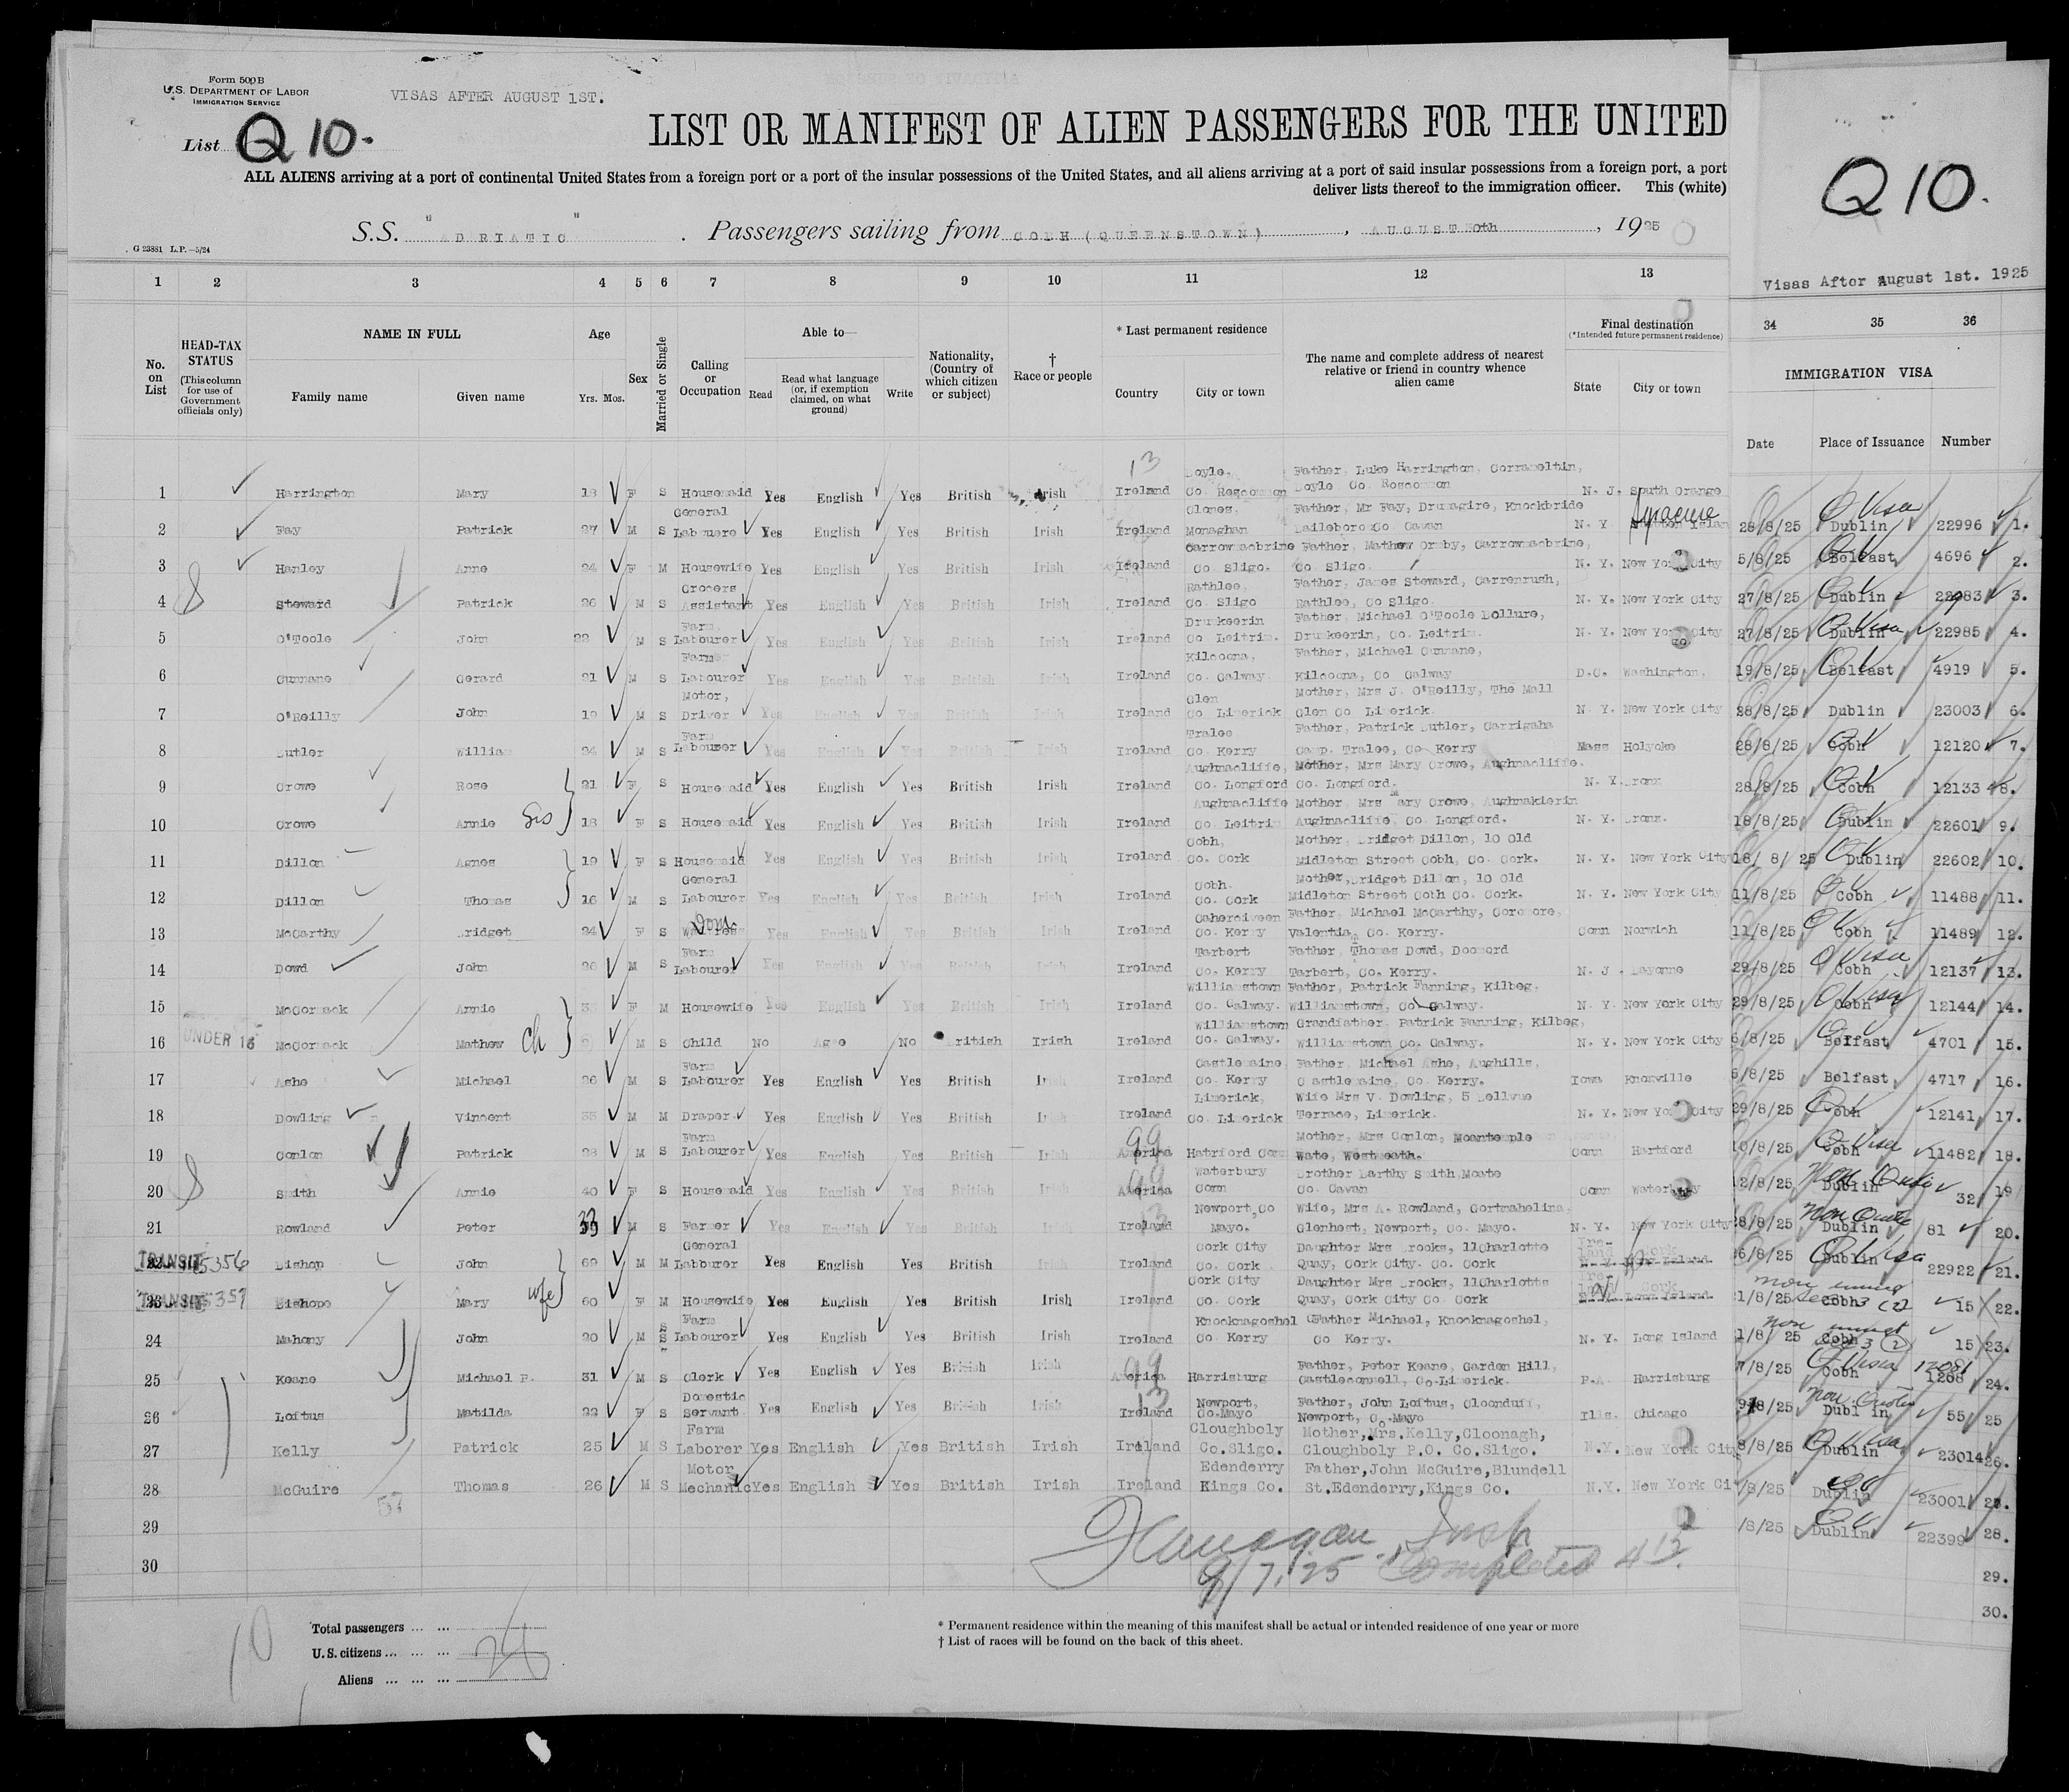 Form 500B
U.S. DEPARTMENT OF LABOR
IMMIGRATION SERVICE
VISAS AFTER AUGUST 1ST.
List Q 10.
LIST OR MANIFEST OF ALIEN PASSENGERS FOR THE UNITED
ALL ALIENS arriving at a port of continental United States from a foreign port or a port of the insular possessions of the United States, and all aliens arriving at a port of said insular possessions from a foreign port, a port
deliver lists thereof to the immigration officer. This (white)
S.S. "ADRIATIC". Passengers sailing from COBH (QUEENSTOWN), AUGUST 30th, 1925
G 23881 L.P.—5/24
Q 10.
Visas After August 1st. 1925
1 2 3 4 5 6 7 8 9 10 11 12 13
34 35 36
No. on List
HEAD-TAX STATUS
(This column for use of Government officials only)
NAME IN FULL
Family name Given name
Age
Yrs. Mos.
Sex
Married or Single
Calling or Occupation
Able to—
Read
Read what language (or, if exemption claimed, on what ground)
Write
Nationality, (Country of which citizen or subject)
† Race or people
* Last permanent residence
Country City or town
The name and complete address of nearest relative or friend in country whence alien came
Final destination
(*Intended future permanent residence)
State City or town
IMMIGRATION VISA
Date Place of Issuance Number
1 Harrington Mary 18 F S Housemaid Yes English Yes British Irish Ireland Boyle, Co. Roscommon Father, Luke Harrington, Corrameltin, Boyle Co. Roscommon N. J. South Orange
2 Fay Patrick 27 M S General Labourer Yes English Yes British Irish Ireland Clones, Monaghan Father, Mr Fay, Drumagire, Knockbride Baileboro Co. Cavan N. Y. Syracuse
3 Hanley Anne 24 F M Housewife Yes English Yes British Irish Ireland Carrowmacbrine Co. Sligo. Father, Mathew Ormby, Carrowmacbrine, Co. Sligo. N. Y. New York City
4 Steward Patrick 26 M S Grocers Assistant Yes English Yes British Irish Ireland Rathlee, Co. Sligo Father, James Steward, Carrenrush, Rathlee, Co Sligo. N. Y. New York City
5 O'Toole John 22 M S Farm Labourer Yes English Yes British Irish Ireland Drumkeerin Co Leitrim. Father, Michael O'Toole Dollure, Drumkeerin, Co. Leitrim. N. Y. New York City
6 Cunnane Gerard 21 M S Farm Labourer Yes English Yes British Irish Ireland Kilcoona, Co. Galway. Father, Michael Cunnane, Kilcoona, Co Galway D.C. Washington,
7 O'Reilly John 19 M S Motor, Driver Yes English Yes British Irish Ireland Glen Co. Limerick Mother, Mrs J. O'Reilly, The Mall Glen Co Limerick. N. Y. New York City
8 Butler William 24 M S Farm Labourer Yes English Yes British Irish Ireland Tralee Co. Kerry Father, Patrick Butler, Carrigaha Camp. Tralee, Co Kerry Mass Holyoke
9 Crowe Rose 21 F S Housemaid Yes English Yes British Irish Ireland Aughnacliffe, Co. Longford Mother, Mrs Mary Crowe, Aughnacliffe. Co. Longford. N. Y. Bronx
10 Crowe Annie Sis 18 F S Housemaid Yes English Yes British Irish Ireland Aughnacliffe Co. Leitrim Mother, Mrs Mary Crowe, Aughnakierin Aughnacliffe, Co. Longford. N. Y. Bronx.
11 Dillon Agnes 19 F S Housemaid Yes English Yes British Irish Ireland Cobh, Co. Cork Mother, Bridget Dillon, 10 Old Midleton Street Cobh, Co. Cork. N. Y. New York City
12 Dillon Thomas 16 M S General Labourer Yes English Yes British Irish Ireland Cobh. Co. Cork Mother, Bridget Dillon, 10 Old Midleton Street Cobh Co. Cork. N. Y. New York City
13 McCarthy Bridget 24 F S Waitress Dom Yes English Yes British Irish Ireland Caherciveen Co. Kerry Father, Michael McCarthy, Coromore, Valentia, Co. Kerry. Conn Norwich
14 Dowd John 26 M S Farm Labourer Yes English Yes British Irish Ireland Tarbert Co. Kerry Father, Thomas Dowd, Doonord Tarbert, Co. Kerry. N. J. Bayonne
15 McCormack Annie F M Housewife Yes English Yes British Irish Ireland Williamstown Co. Galway. Father, Patrick Fanning, Kilbeg, Williamstown, Co Galway. N. Y. New York City
16 UNDER 16 McCormack Mathew Ch M S Child No Age No British Irish Ireland Williamstown Co. Galway. Grandfather, Patrick Fanning, Kilbeg, Williamstown Co. Galway. N. Y. New York City
17 Ashe Michael 26 M S Farm Labourer Yes English Yes British Irish Ireland Castlemaine, Co. Kerry Father, Michael Ashe, Aughills, Castlemaine, Co. Kerry. Iowa Knoxville
18 Dowling Vincent 35 M M Draper Yes English Yes British Irish Ireland Limerick, Co. Limerick Wife Mrs V. Dowling, 5 Bellvue Terrace, Limerick. N. Y. New York City
19 Conlon Patrick 28 M S Farm Labourer Yes English Yes British Irish America Hatrford Conn Mother, Mrs Conlon, Moantemple Wate, Westmeath. Conn Hartford
20 Smith Annie 40 F S Housemaid Yes English Yes British Irish America Waterbury Conn Brother Barthy Smith Moate Co. Cavan Conn Waterbury
21 Rowland Peter 33 M S Farmer Yes English Yes British Irish Ireland Newport, Co Mayo. Wife, Mrs A. Rowland, Gortmahelina, Glenhest, Newport, Co. Mayo. N. Y. New York City
TRANSIT 5356 Bishop John 69 M M General Labourer Yes English Yes British Irish Ireland Cork City Co. Cork Daughter Mrs Brooks, 11 Charlotte Quay, Cork City. Co. Cork Ireland Cork
TRANSIT 5357 Bishope Mary wfe 60 F M Housewife Yes English Yes British Irish Ireland Cork City Co. Cork Daughter Mrs Brooks, 11 Charlotte Quay, Cork City Co Cork Cork
24 Mahony John 20 M S Farm Labourer Yes English Yes British Irish Ireland Knocknagoshel Co Kerry Father Michael, Knocknagoshel, Co Kerry. N. Y. Long Island
25 Keane Michael P. 31 M S Clerk Yes English Yes British Irish America Harrisburg Father, Peter Keane, Garden Hill, Castleconnell, Co-Limerick. P.A. Harrisburg
26 Loftus Matilda 22 F S Domestic Servant Yes English Yes British Irish Ireland Newport, Co-Mayo Father, John Loftus, Cloonduff, Newport, Co-Mayo Ills. Chicago
27 Kelly Patrick 25 M S Farm Laborer Yes English Yes British Irish Ireland Cloughboly Co.Sligo. Mother, Mrs.Kelly, Cloonagh, Cloughboly P.O. Co.Sligo. N.Y. New York City
28 McGuire Thomas 26 M S Motor Mechanic Yes English Yes British Irish Ireland Edenderry Kings Co. Father, John McGuire, Blundell St. Edenderry, Kings Co. N.Y. New York Ci
57
29
30
28/8/25 Dublin 22996 1.
5/8/25 Belfast 4696 2.
27/8/25 Dublin 22983 3.
27/8/25 Dublin 22985 4.
19/8/25 Belfast 4919 5.
28/8/25 Dublin 23003 6.
28/8/25 Cobh 12120 7.
28/8/25 Cobh 12133 8.
18/8/25 Dublin 22601 9.
18/ 8/ 25 Dublin 22602 10.
11/8/25 Cobh 11488 11.
11/8/25 Cobh 11489 12.
29/8/25 Cobh 12137 13.
29/8/25 Cobh 12144 14.
5/8/25 Belfast 4701 15.
5/8/25 Belfast 4717 16.
29/8/25 Cobh 12141 17.
10/8/25 Cobh 11482 18.
12/8/25 Dublin Non Quota 32 19
28/8/25 Dublin Non Quota 81 20.
26/8/25 Dublin 22922 21.
21/8/25 Cobh 15 22.
21/8/ 25 Cobh 15 23.
7/8/25 Cobh 1208 24.
8/25 Dublin Non Quota 55 25
8/8/25 Dublin 23014 26.
/8/25 Dublin 23001 27.
/8/25 Dublin 22399 28.
29.
30.
Flanagan, Insp
9/7/25 Completed 4 15
Total passengers
U.S. citizens
Aliens
10
* Permanent residence within the meaning of this manifest shall be actual or intended residence of one year or more
† List of races will be found on the back of this sheet.